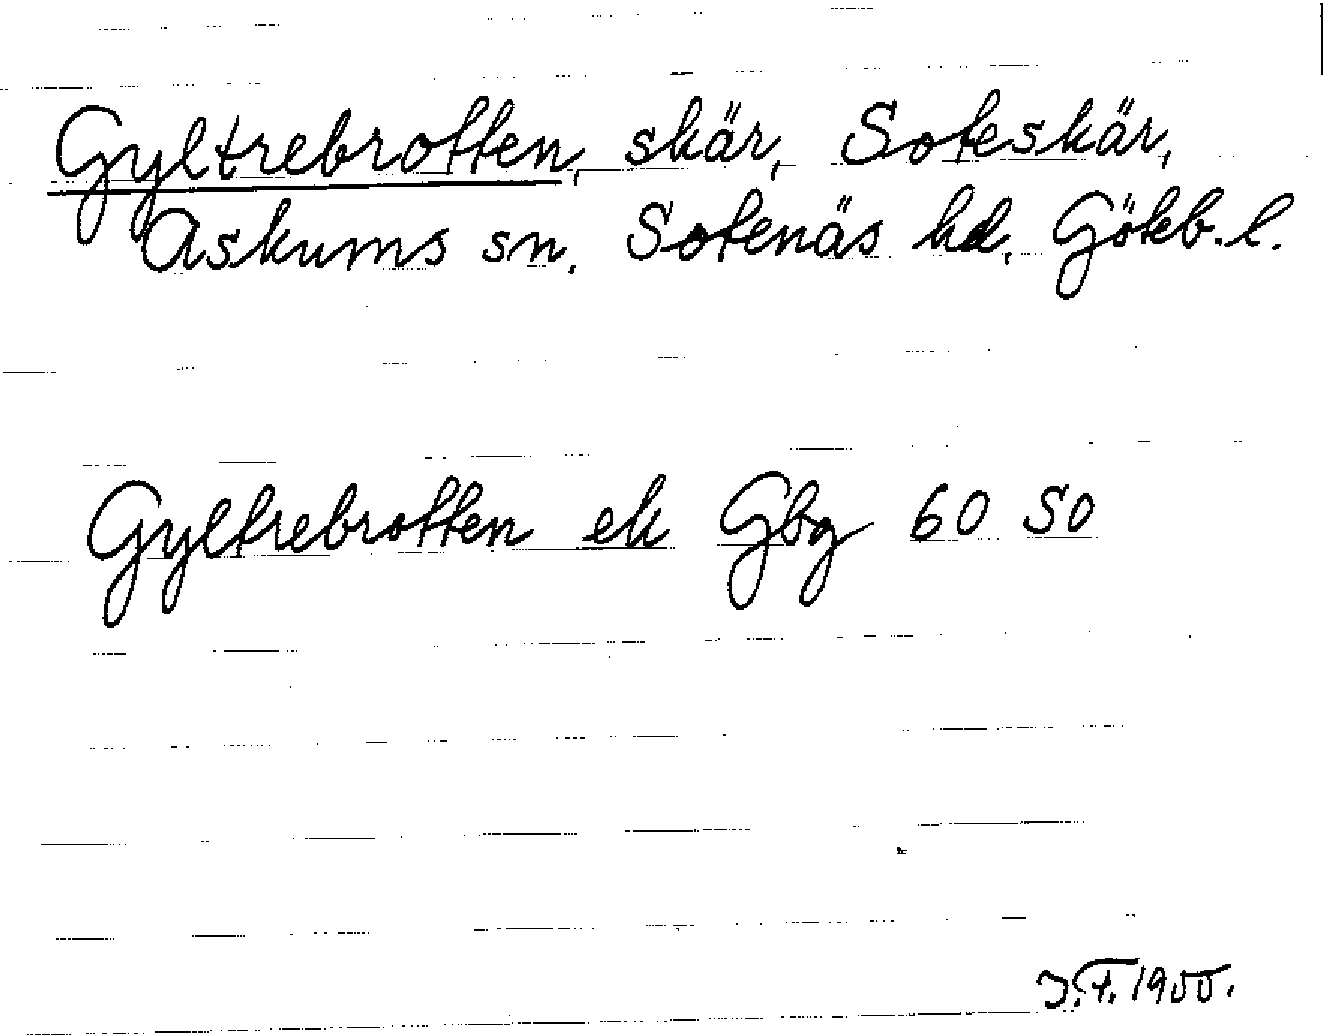 Gyltrebrotten, skär, Soteskär,
Askums sn, Sotenäs hd, Göteb. l.
Gyltrebrotten ek Gbg 60 SO
J.F. 1955.